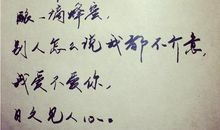 酿一滴蜂蜜,
别人怎么说我都不介意,
我爱不爱你,
日久见人心。